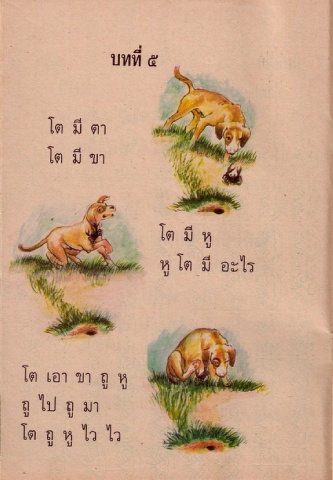 บทที่ ๕
โต มี ตา
โต มี ขา
โต มี หู
หู โต มี อะไร
โต เอา ขา ถู หู
ถู ไป ถู มา
โต ถู หู ไว ไว